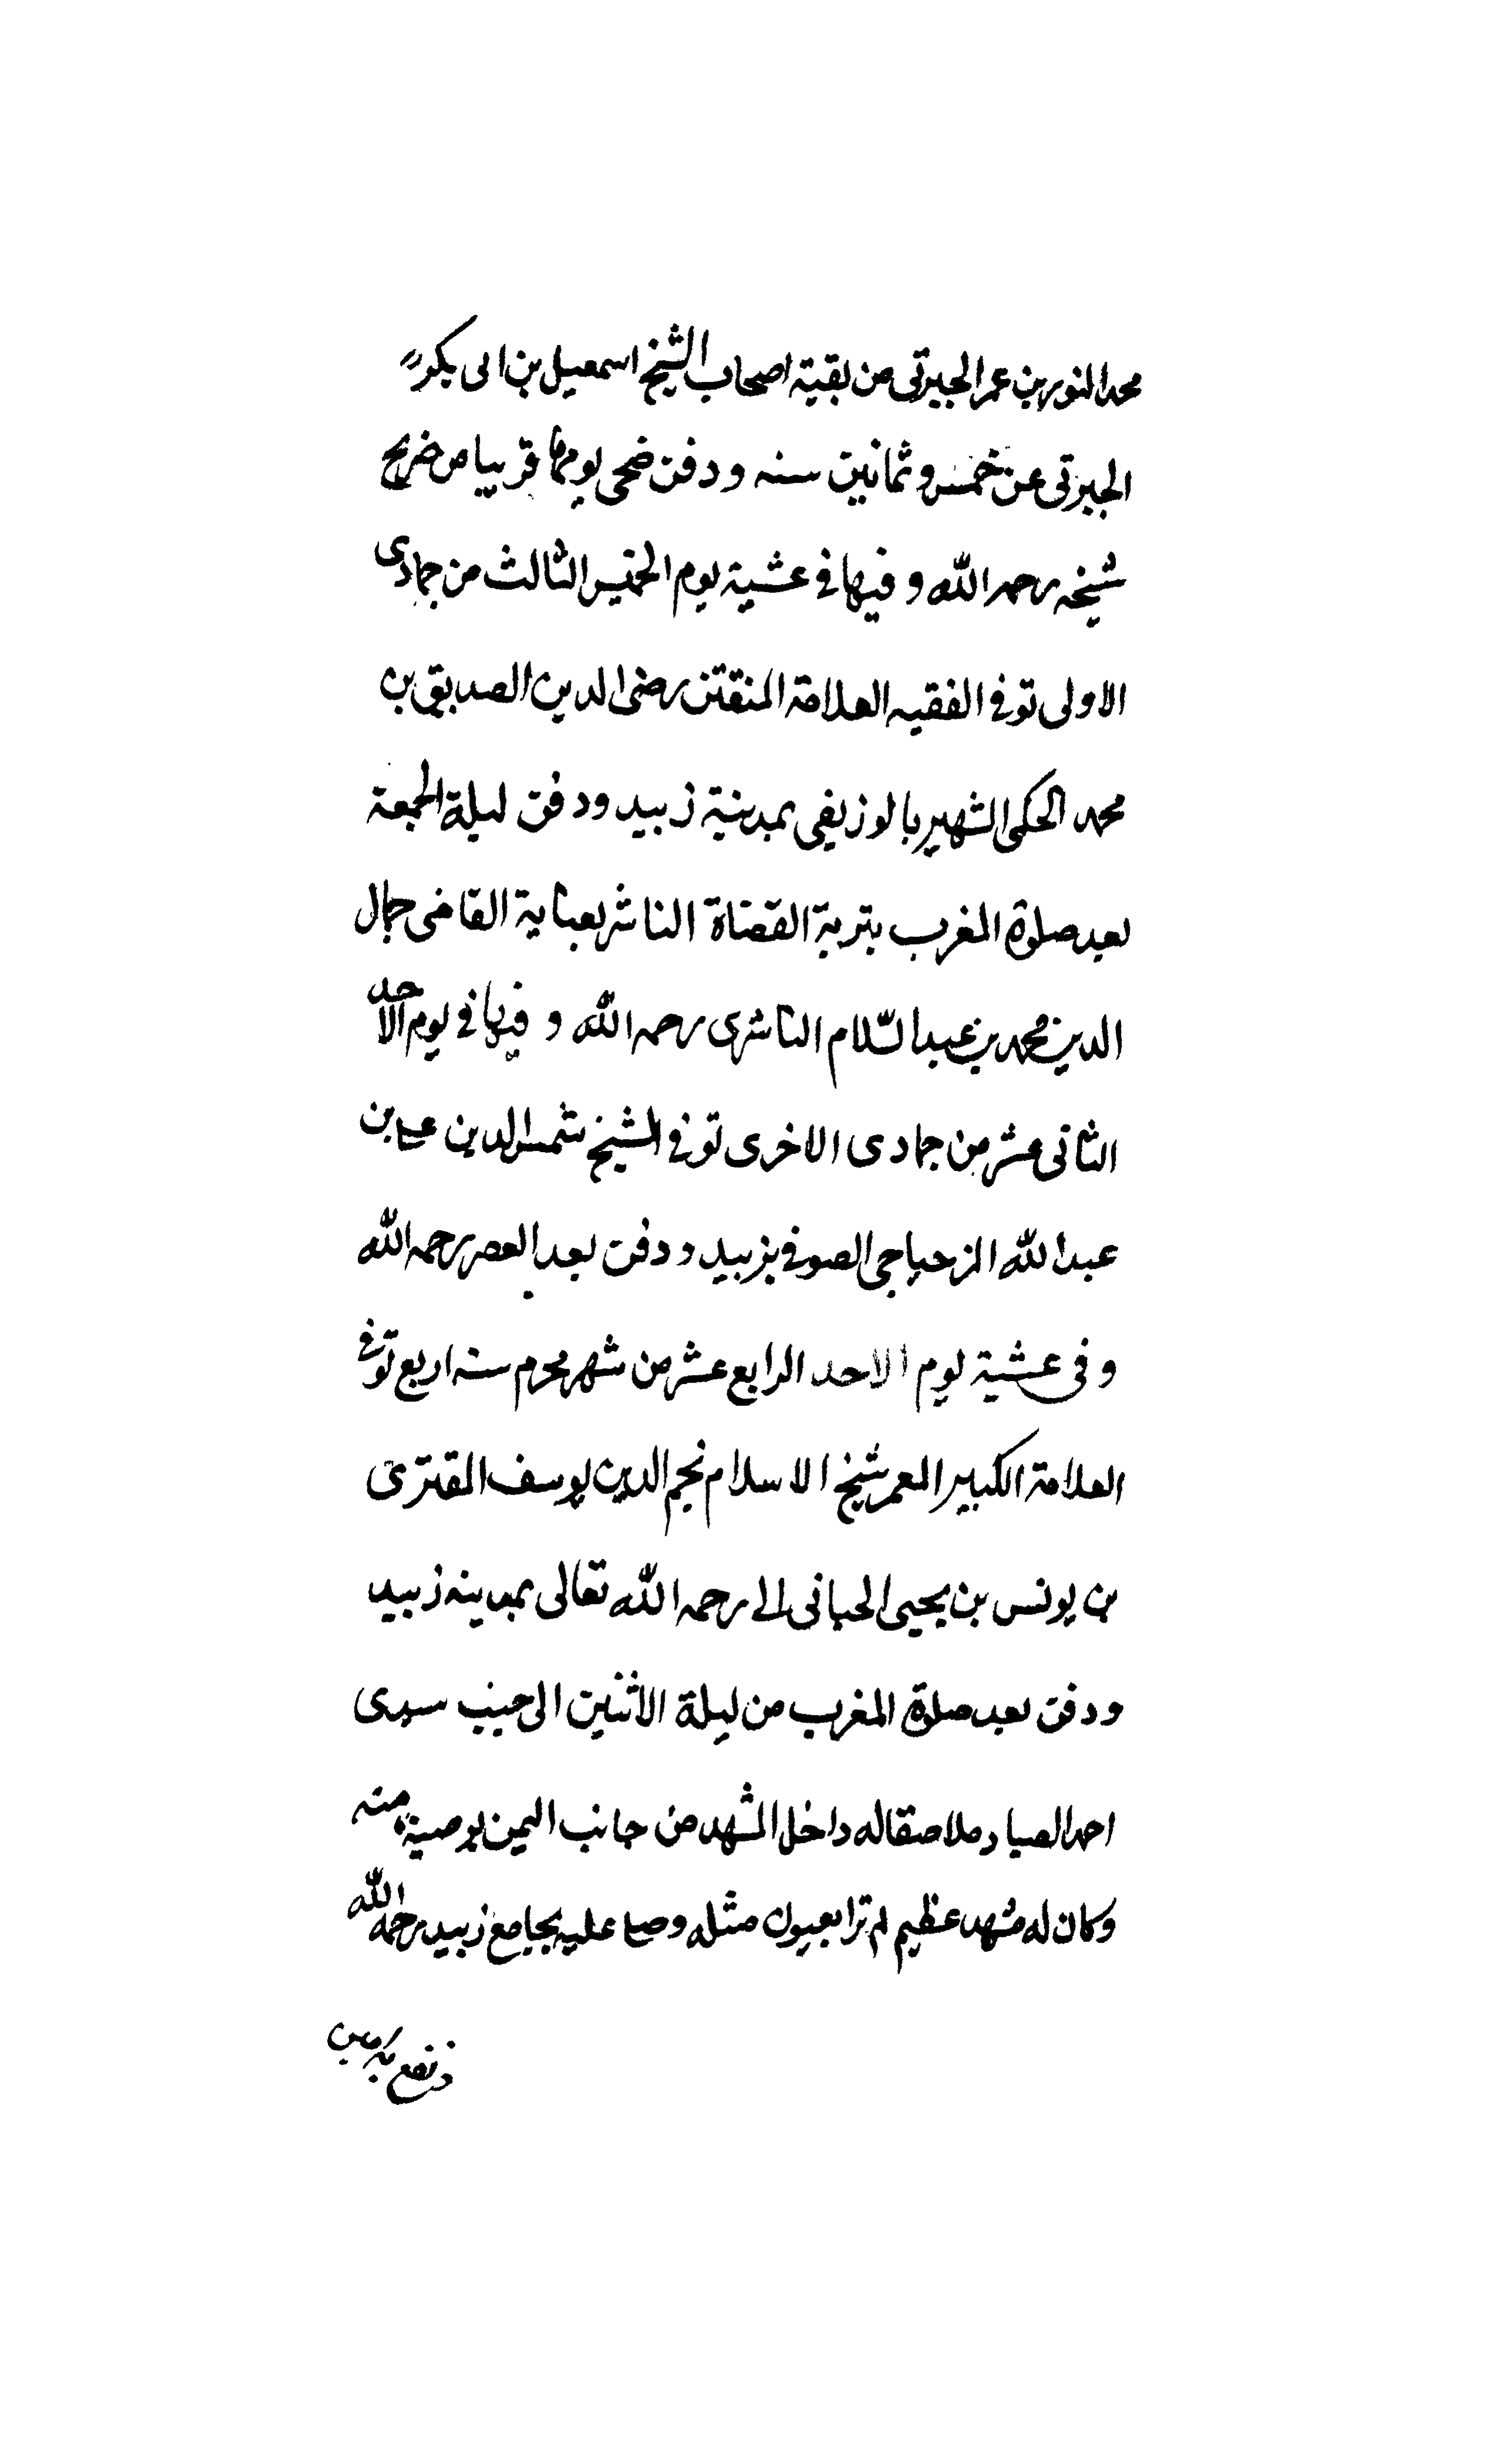 محمد النور بن عمر الجبرتى من بقية اصحاب الشيخ اسمعيل بن ابى بكر
الجبرتى عن خمس وثمانين سنه ودفن ضحى يومها قريبا من ضريح
شيخه رحمه الله وفيها فى عشية يوم الخميس الثالث من جمادى
الاولى توفى الفقيه العلامة المتفنن رضى الدين الصديق بن
محمد الحكمى الشهير بالوزيفى بمدينة زبيد ودفن ليلة الجمعة
بعد صلوة المغرب بتربة القضاة الناشر بعناية القاضى جمال
الدين محمد بن عبد السّلام الناشرى رحمه الله وفيها فى يوم الاحد
الثانى عشر من جمادى الاخرى توفى الشيخ شمس الدين على بن
عبد الله المزجاجى الصوفى بزبيد ودفن بعد العصر رحمه الله
وفى عشية يوم الاحد الرابع عشر من شهر محرم سنه اربع توفى
العلامة الكبير المعمر شيخ الاسلام نجم الدين يوسف المقرى
بن يونس بن يحيى الجبائى رحمه الله تعالى بمدينه زبيد
ودفن بعد صلوة المغرب من ليلة الاثنين الى جنب سيدى
احمد الصياد ملاصقا له داخل المشهد من جانب اليمن بوصية منه
وكان له مشهد عظيم لم تر العيون مثله وصلى عليه بجامع زبيد رحمه الله